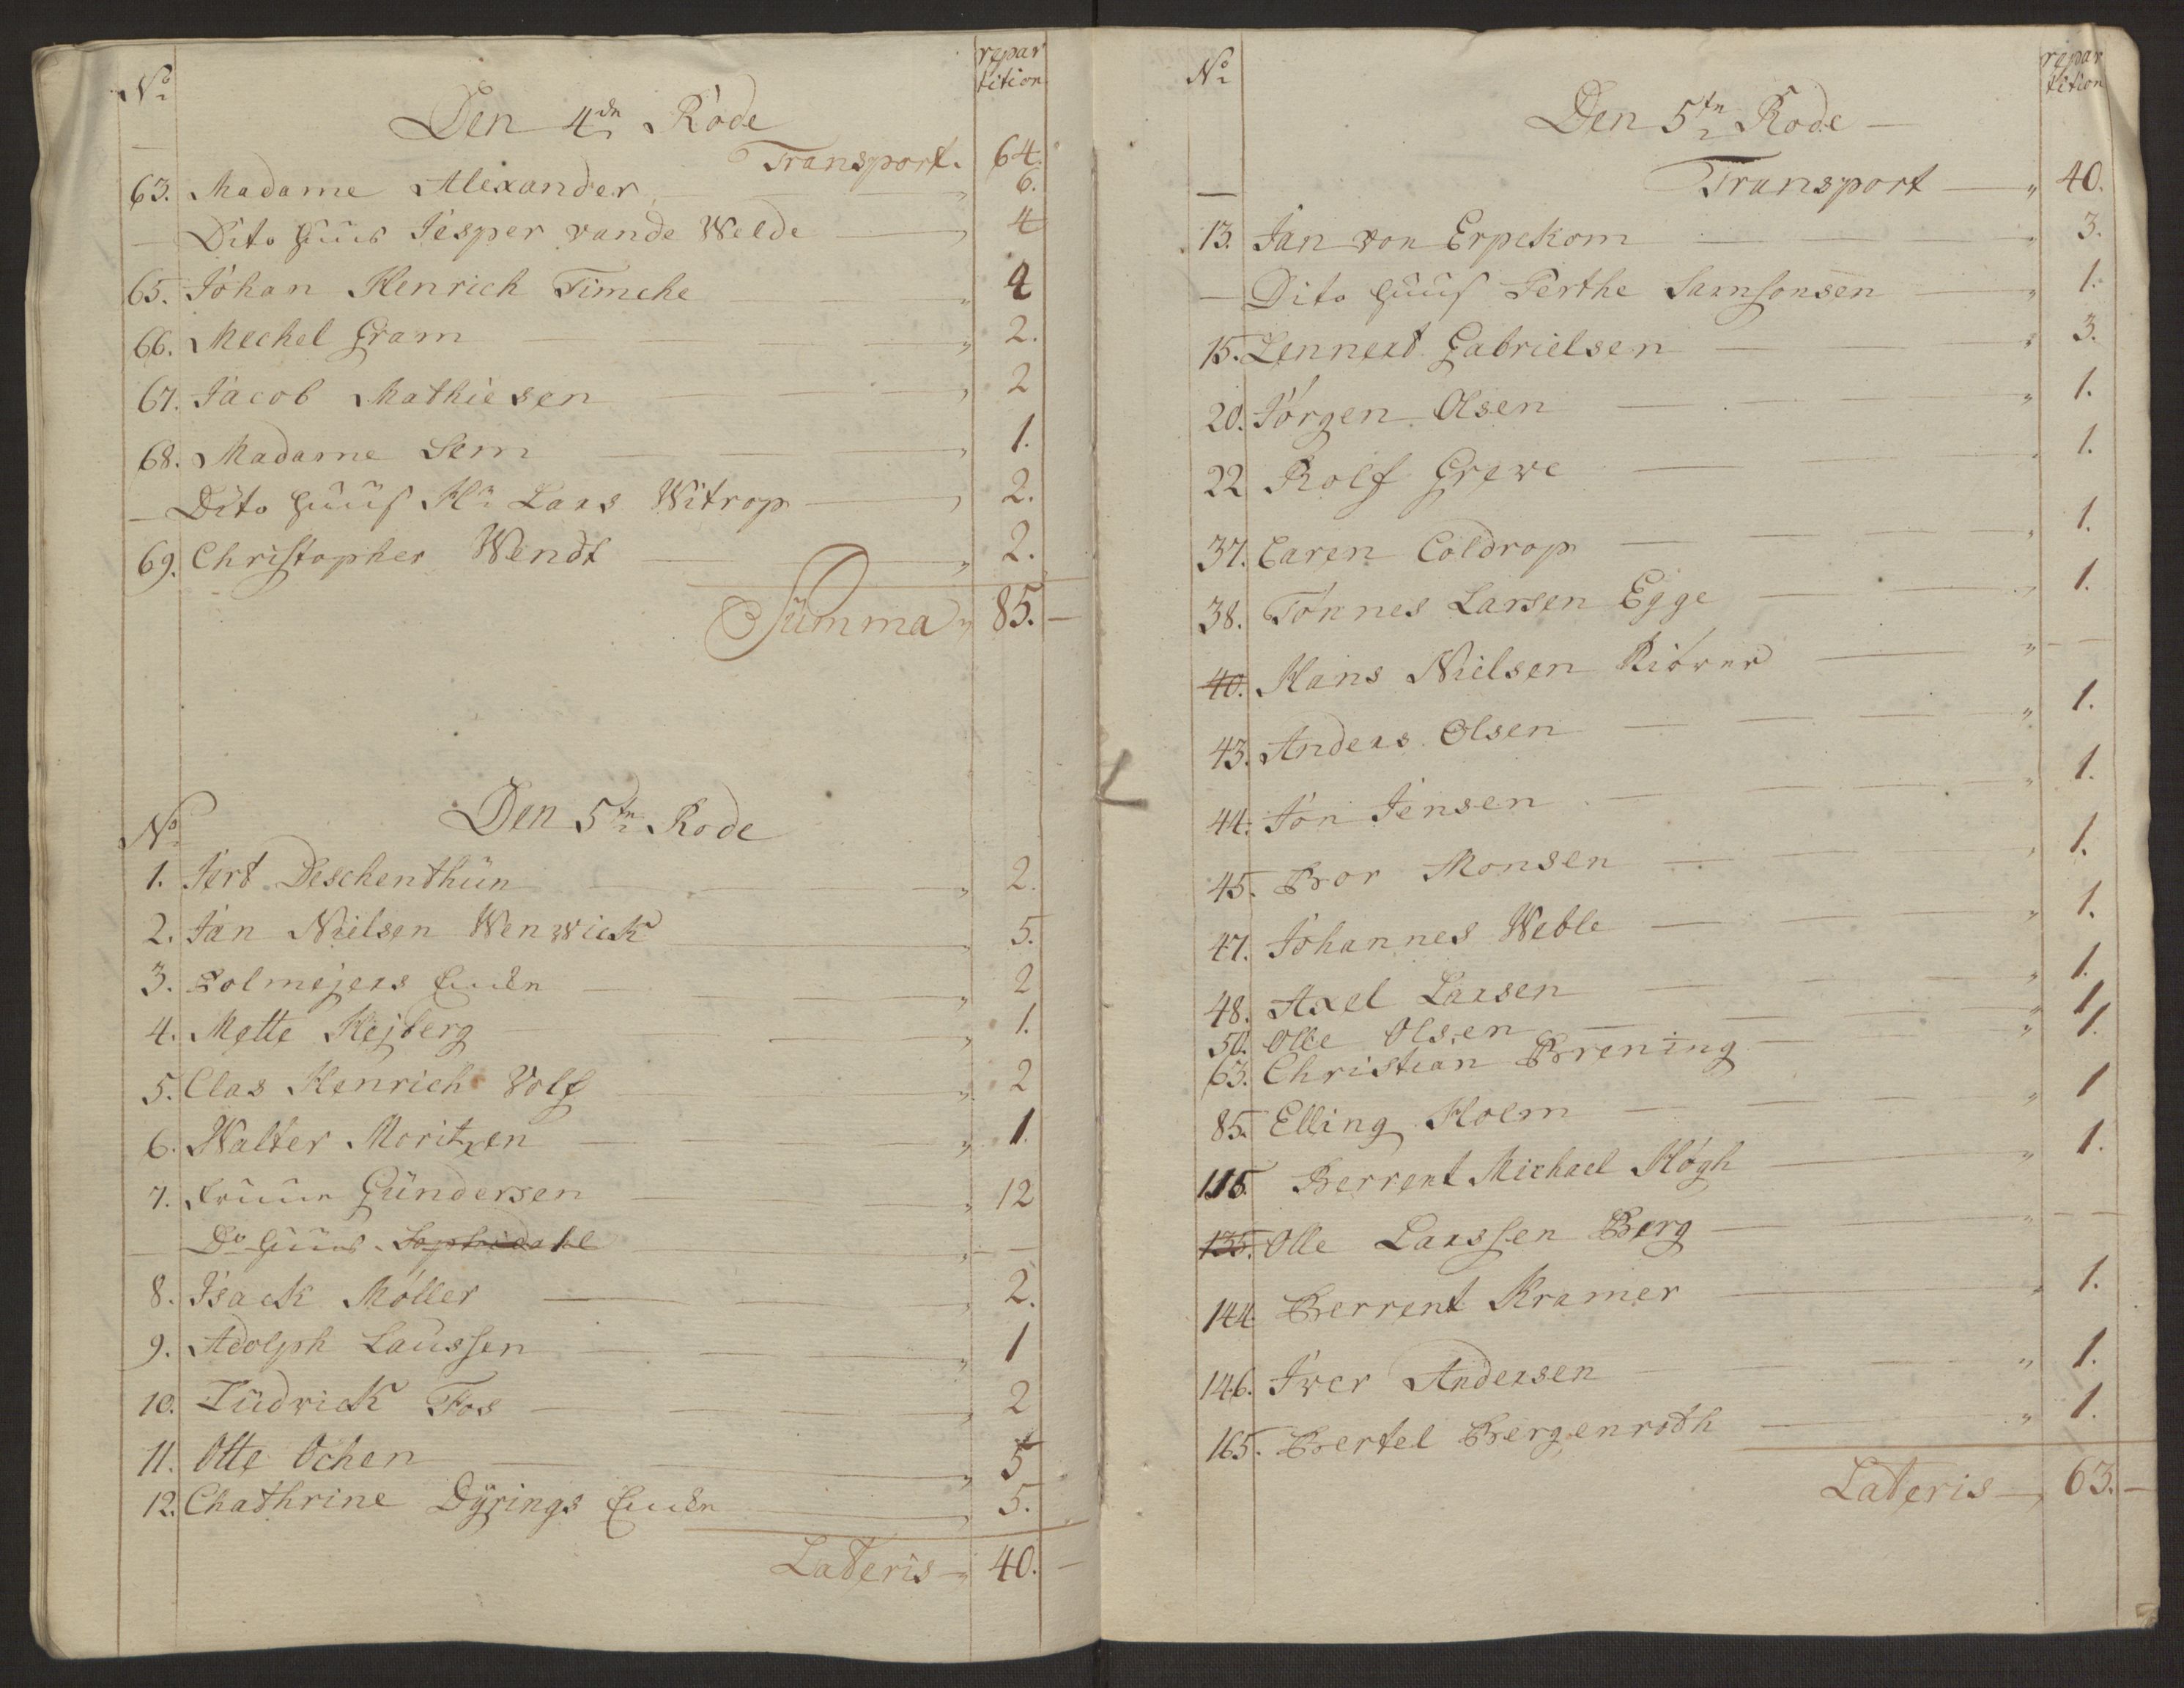 No repar
tition
Den 4de Rode
Transport. 64.
63. Madame Alexander 6.
— Dito Huus Jesper vande Welde 4
65. Johan Henrich Timche 4
66. Mechel Gram 2.
67. Jacob Mathiesen 2
68. Madame Sem 1.
— Dito Huus Hr Lars Witrop 2.
69. Christopher Wendt 2.
Summa 85. —
No Den 5te Rode
1. Jert Deschenthün 2.
2. Jan Nielsen Wenwick 5.
3. Holmejers Encke 2
4. Mette Hejberg 1.
5. Clas Henrich Volf 2
6. Walter Moritzen 1.
7. Fruen Gündersen 12
— Do Huus Sophiedahl —
8. Isack Möller 2.
9. Adolph Laussen 1
10. Lüdrick Fos 2
11. Otte Ochen 5
12. Chathrine Dÿrings Encke 5.
Lateris 40. —
No repar
tition
Den 5te Rode —
— Transport — 40.
13. Jan von Erpekom 3.
— Dito Huus Perthe Samsonsen 1.
15. Lennert Gabrielsen 3.
20. Jörgen Olsen 1.
22 Rolf Greve 1.
37. Caren Coldrop 1.
38. Tönnes Larsen Egge 1.
40. Hans Nielsen Riöver —
43. Anders Olsen 1.
44. Jon Jensen 1.
45. Bror Monsen 1.
47. Johannes Weble 1.
48. Axel Larsen 1.
50. Olle Olsen 1
63. Christian Brening 1.
85. Elling Holm 1
115. Berrent Michael Högh 1.
135. Olle Larssen Berg — —
144 Berrent Kramer 1.
146. Iver Andersen 1.
165. Bertel Bergenroth 1.
Lateris 63. —